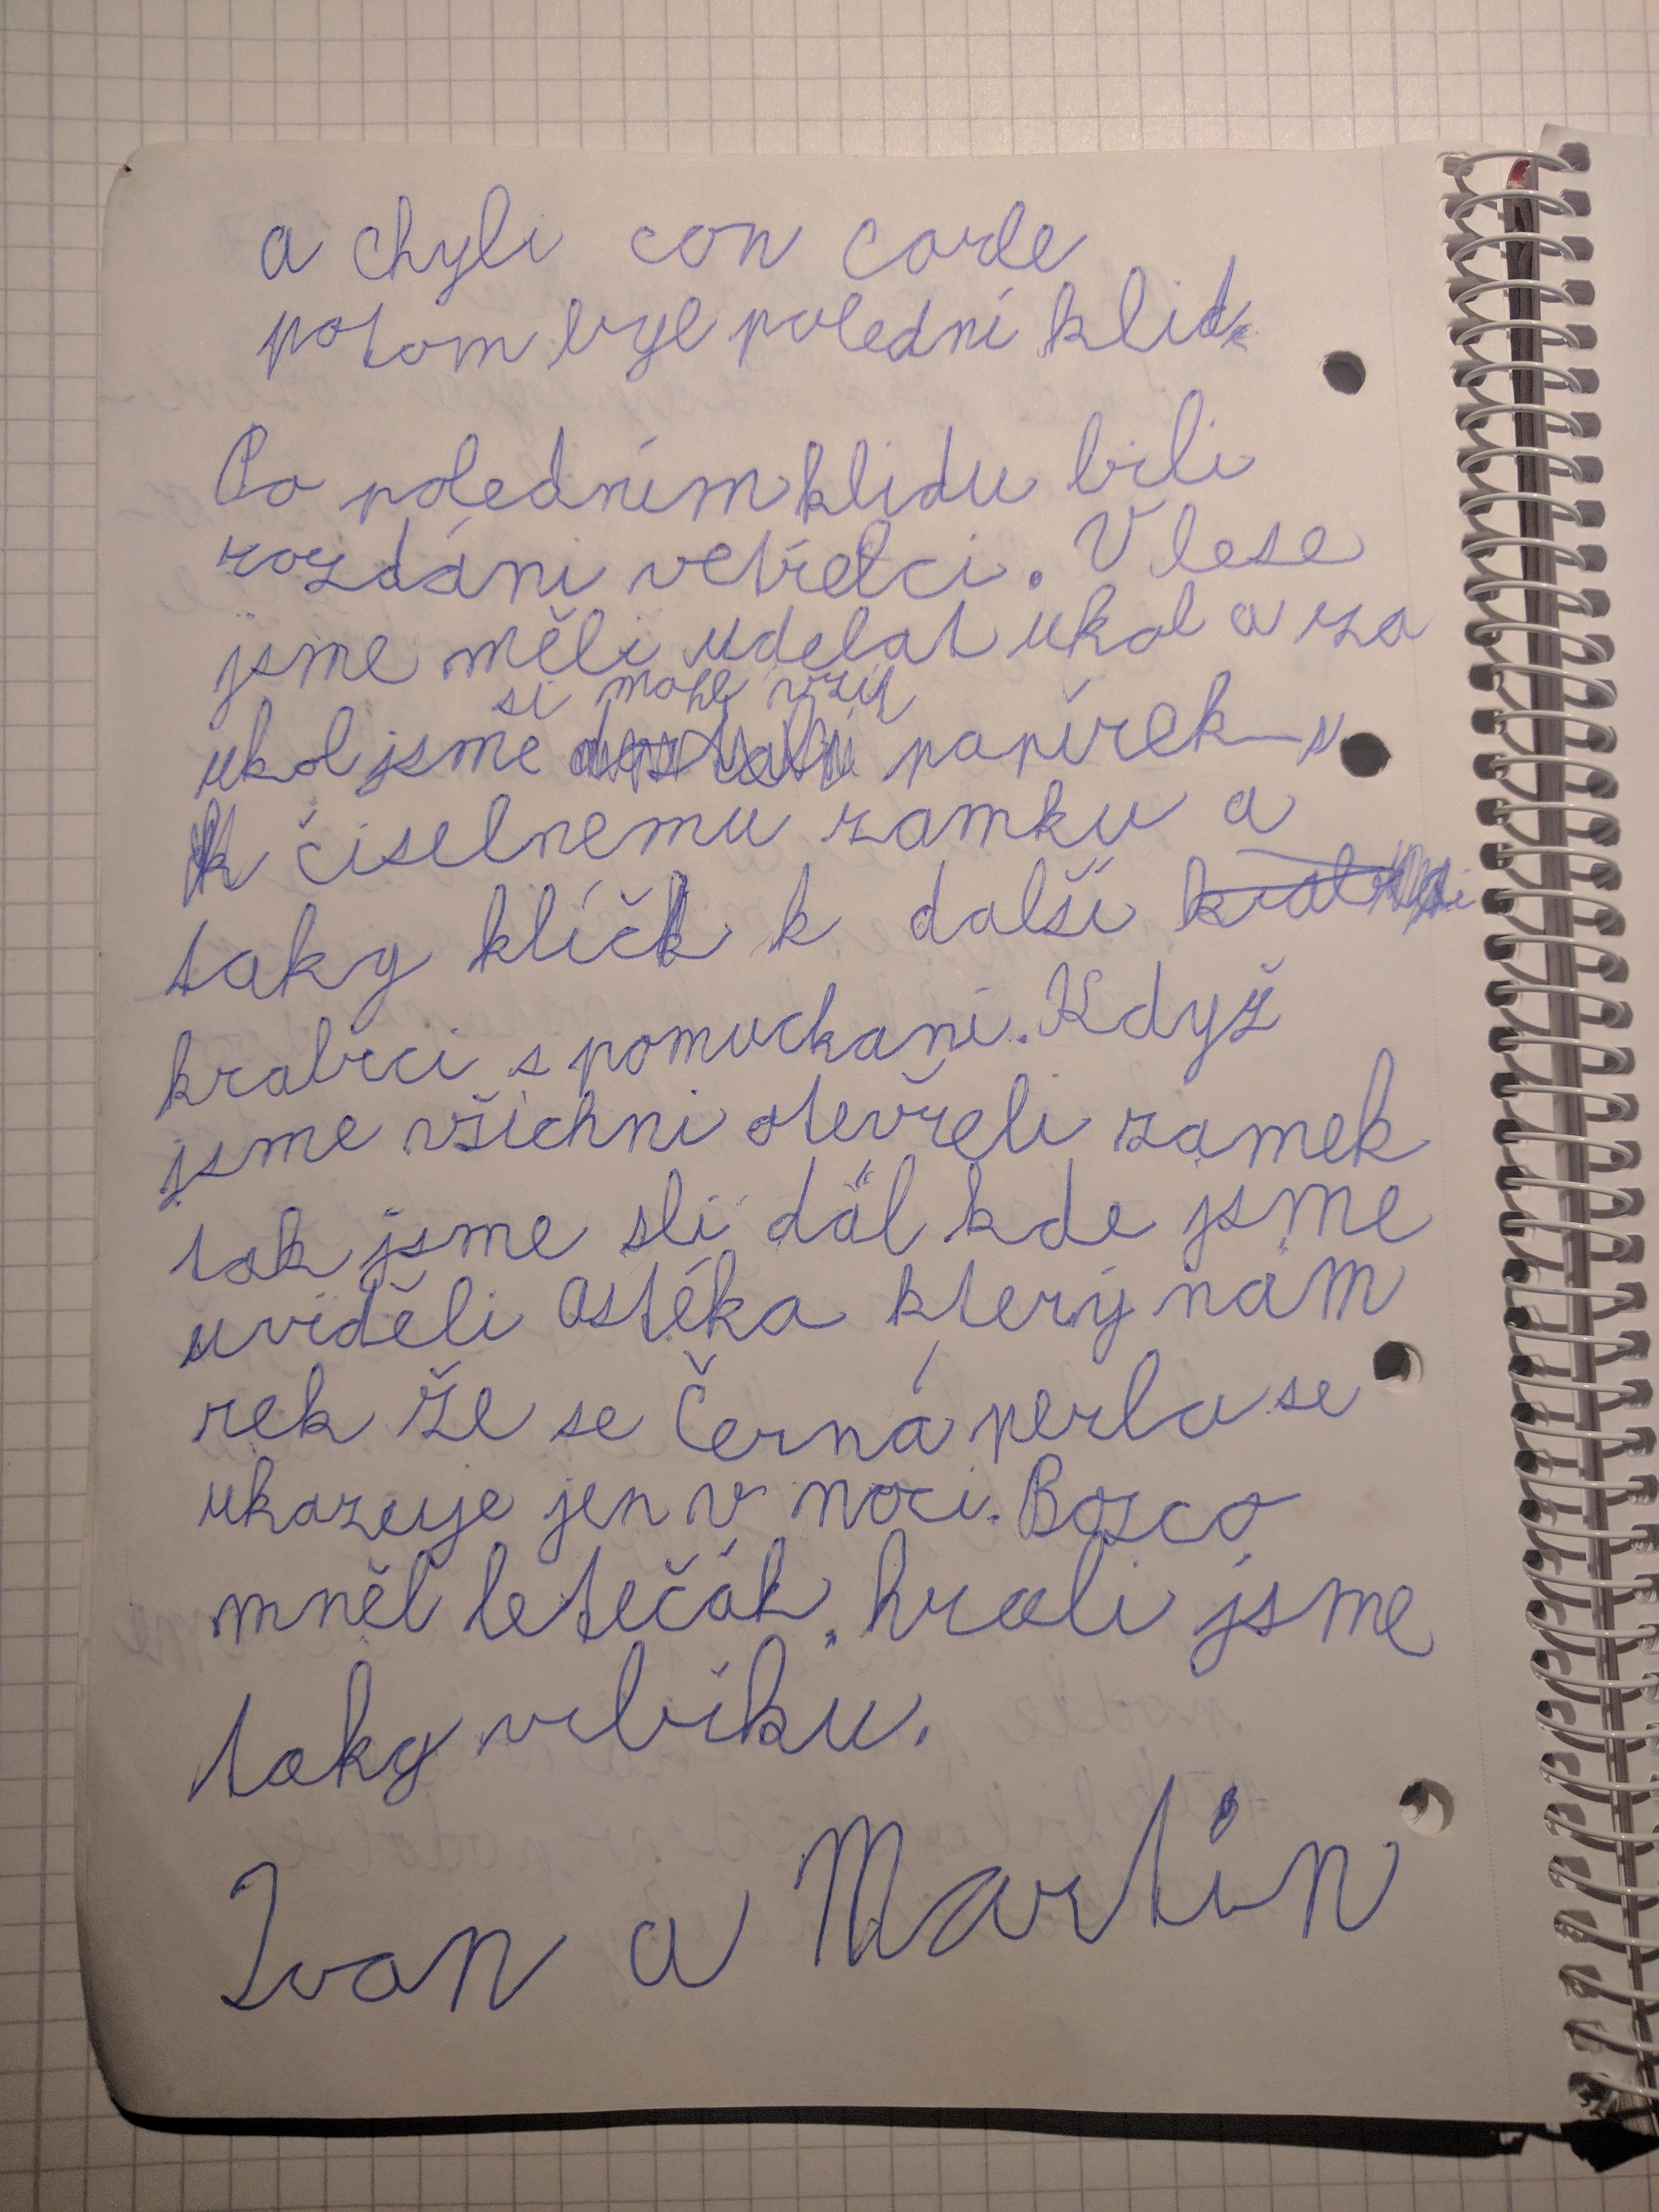 a chyli con corle
potom byl polední klid.
Po poledním klidu bili
rozdáni vetřelci. V lese
jsme měli udelat ukol a za
si mohl vzít
ukol jsme papírek
k čiselnemu zamku a
taky klíčk k další
krabici s pomuckani. Když
jsme všichni otevřeli zamek
tak jsme sli dál kde jsme
uviděli Astéka který nám
rek že se Černá perla se
ukazuje jen v noci. Bosco
mněl letečák. hrali jsme
taky vibiku.
Ivan a Martin